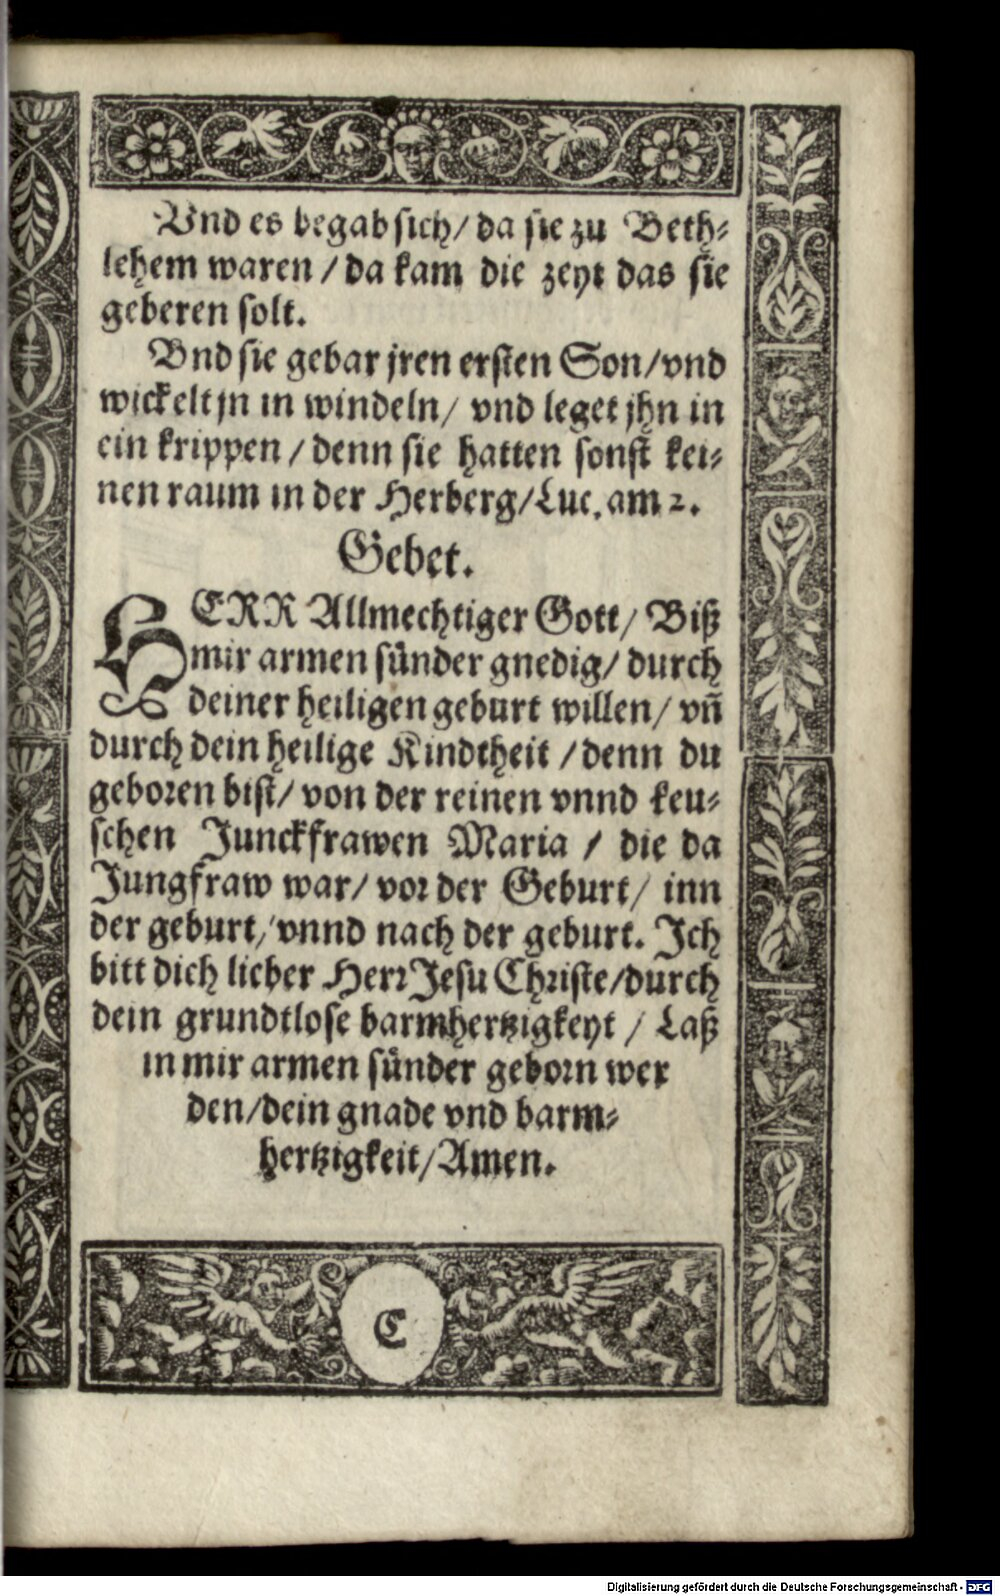 Vnd es begab sich/ da sie zu Beth⸗
lehem waren / da kam die zeyt das sie
geberen solt.
Vnd sie gebar jren ersten Son/vnd
wickelt jn in windeln/ vnd leget jhn in
ein krippen / denn sie hatten sonst kei⸗
nen raum in der Herberg/Luc. am 2.
Gebet.
HERR Allmechtiger Gott/ Biß
mir armen sünder gnedig/ durch
deiner heiligen geburt willen/ vñ
durch dein heilige Kindtheit / denn du
geboren bist/ von der reinen vnnd keu⸗
schen Junckfrawen Maria / die da
Jungfraw war/ vor der Geburt/ inn
der geburt/ vnnd nach der geburt. Ich
bitt dich lieber Herr Jesu Christe/durch
dein grundtlose barmhertzigkeyt / Laß
in mir armen sünder geborn wer
den/dein gnade vnd barm⸗
hertzigkeit/Amen.
C
Digitalisierung gefördert durch die Deutsche Forschungsgemeinschaft - DFG